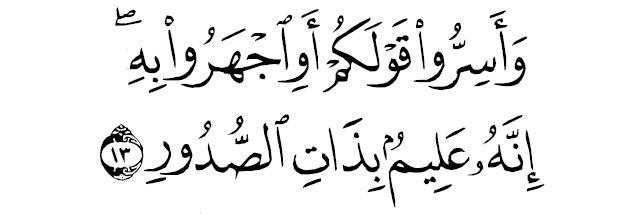 وَأَسِرُّوا۟ قَوْلَكُمْ أَوِ ٱجْهَرُوا۟ بِهِۦٓ ۖ
إِنَّهُۥ عَلِيمٌۢ بِذَاتِ ٱلصُّدُورِ ١٣